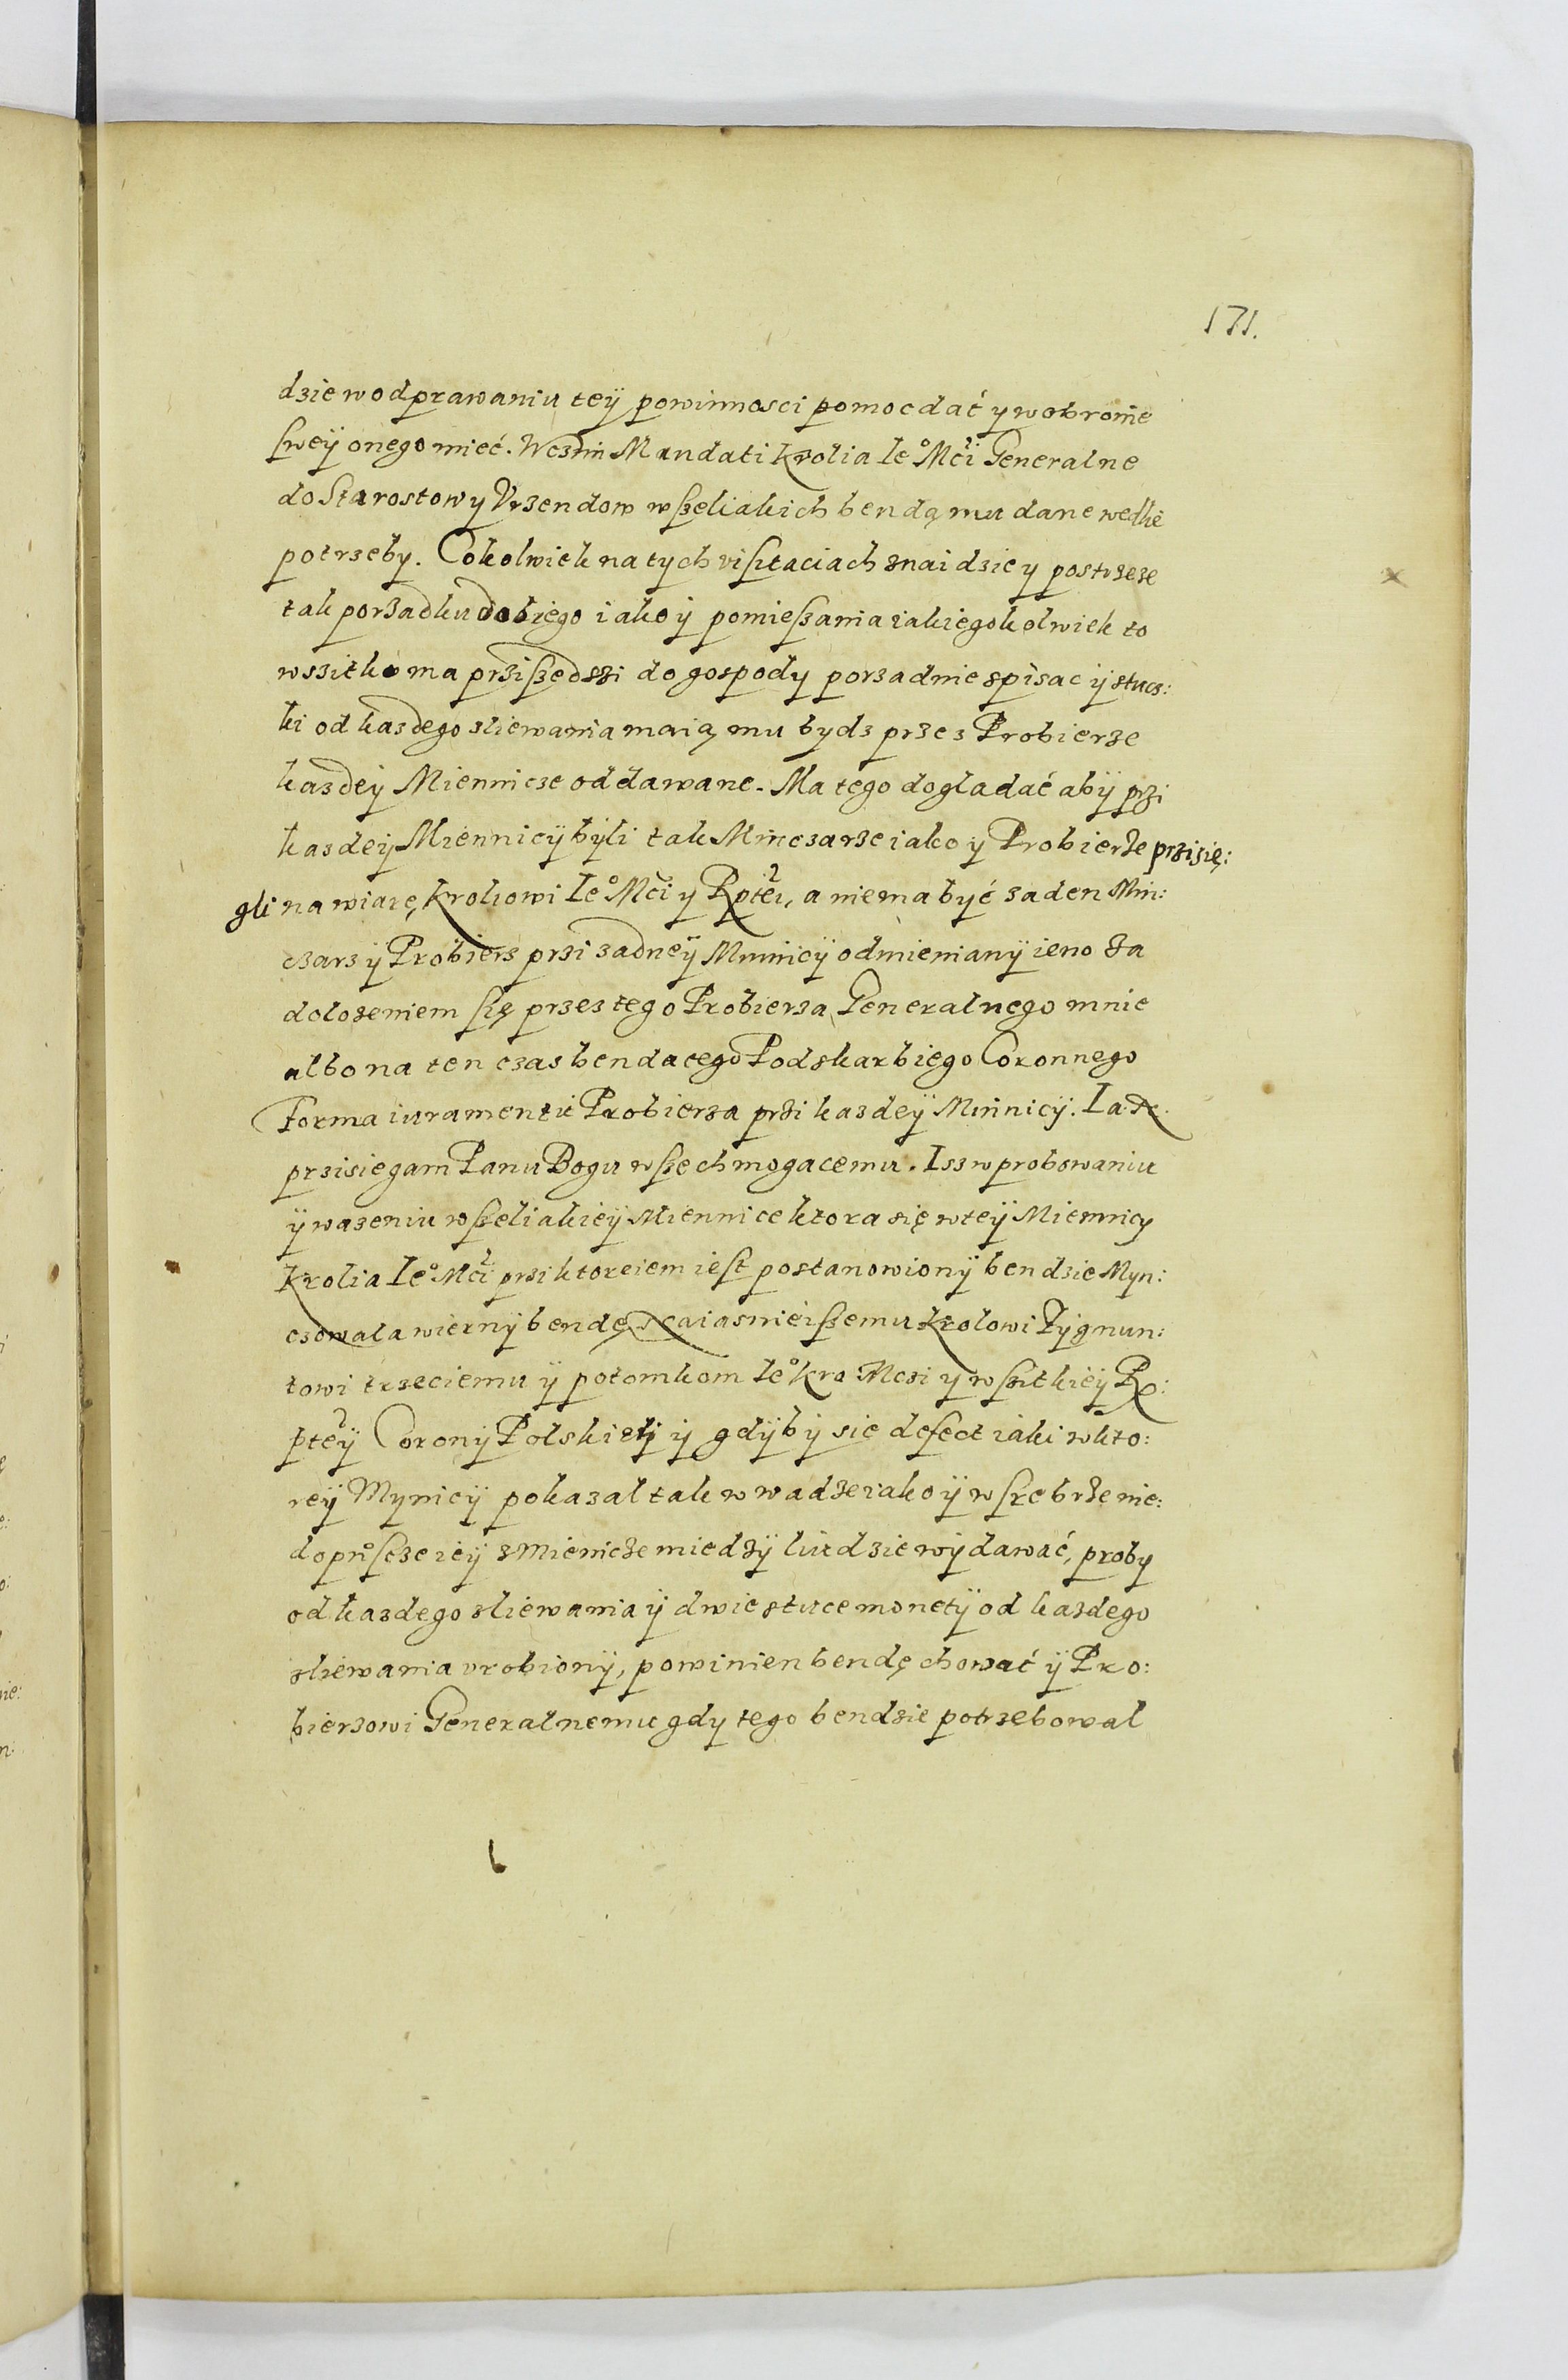 171.
dzie w odprawaniu teÿ powinnosci pomoc dać y w obronie
sweÿ onego mieć. W czim Mandati Krolia Ie° Mći Generalne
do Starostow y Vrzendow wszeliakich bendą mu dane wedlie
potrzeby. Cokolwiek na tych visitaciach znaidzie y postrzeze
tak porzadku dobrego iako ÿ pomieszania iakiegokolwiek to
wszitko ma przisszedszi do gospody porzadnie spisac ÿ stucz:
ki od kazdego zliewania maią mu bydz przez Probierze
kazdeÿ Miennicze oddawane. Ma tego dogladać abÿ przi
kazdeÿ Miennicÿ bÿli tak Minczarze iako ÿ Probierze przisię:
gli na wiarę Kroliowi Ie° Mći y Rptei, a niema być zaden Min:
czarz ÿ Probierz przi zadneÿ Minnicÿ odmienianÿ ieno za
dolozeniem się przez tego Probierza Generalnego mnie
albo na ten czas bendacego Podskarbiego Coronnego
Forma iuramenti Probierza przi kazdeÿ Minnicÿ. Ia N.
przisiegam Panu Bogu wszechmogacemu. Isz w probowaniu
ÿ wazeniu wszeliakieÿ Miennice ktora się w teÿ Miennicy
Krolia Ie° Mći przi ktoreiem iest postanowionÿ bendzie Myn:
czowala wiernÿ bendę Naiasnieiszemu Krolowi Zÿgmun:
towi trzeciemu ÿ potomkom Ie° Kro Mczi y wszitkieÿ Rp:
pteÿ Coronÿ Polskieÿ ÿ gdÿbÿ sie defect iaki w kto:
reÿ Mynicÿ pokazal tak w wadze iako ÿ w srebrze nie:
dopuszcze ieÿ z Mienicze miedzÿ liudzie wÿdawać, proby
od kazdego zliewania ÿ dwie stuce monetÿ od kazdego
zliewania vrobionÿ, powinien bendę chować ÿ Pro:
bierzowi Generalnemu gdy tego bendzie potrzebowal